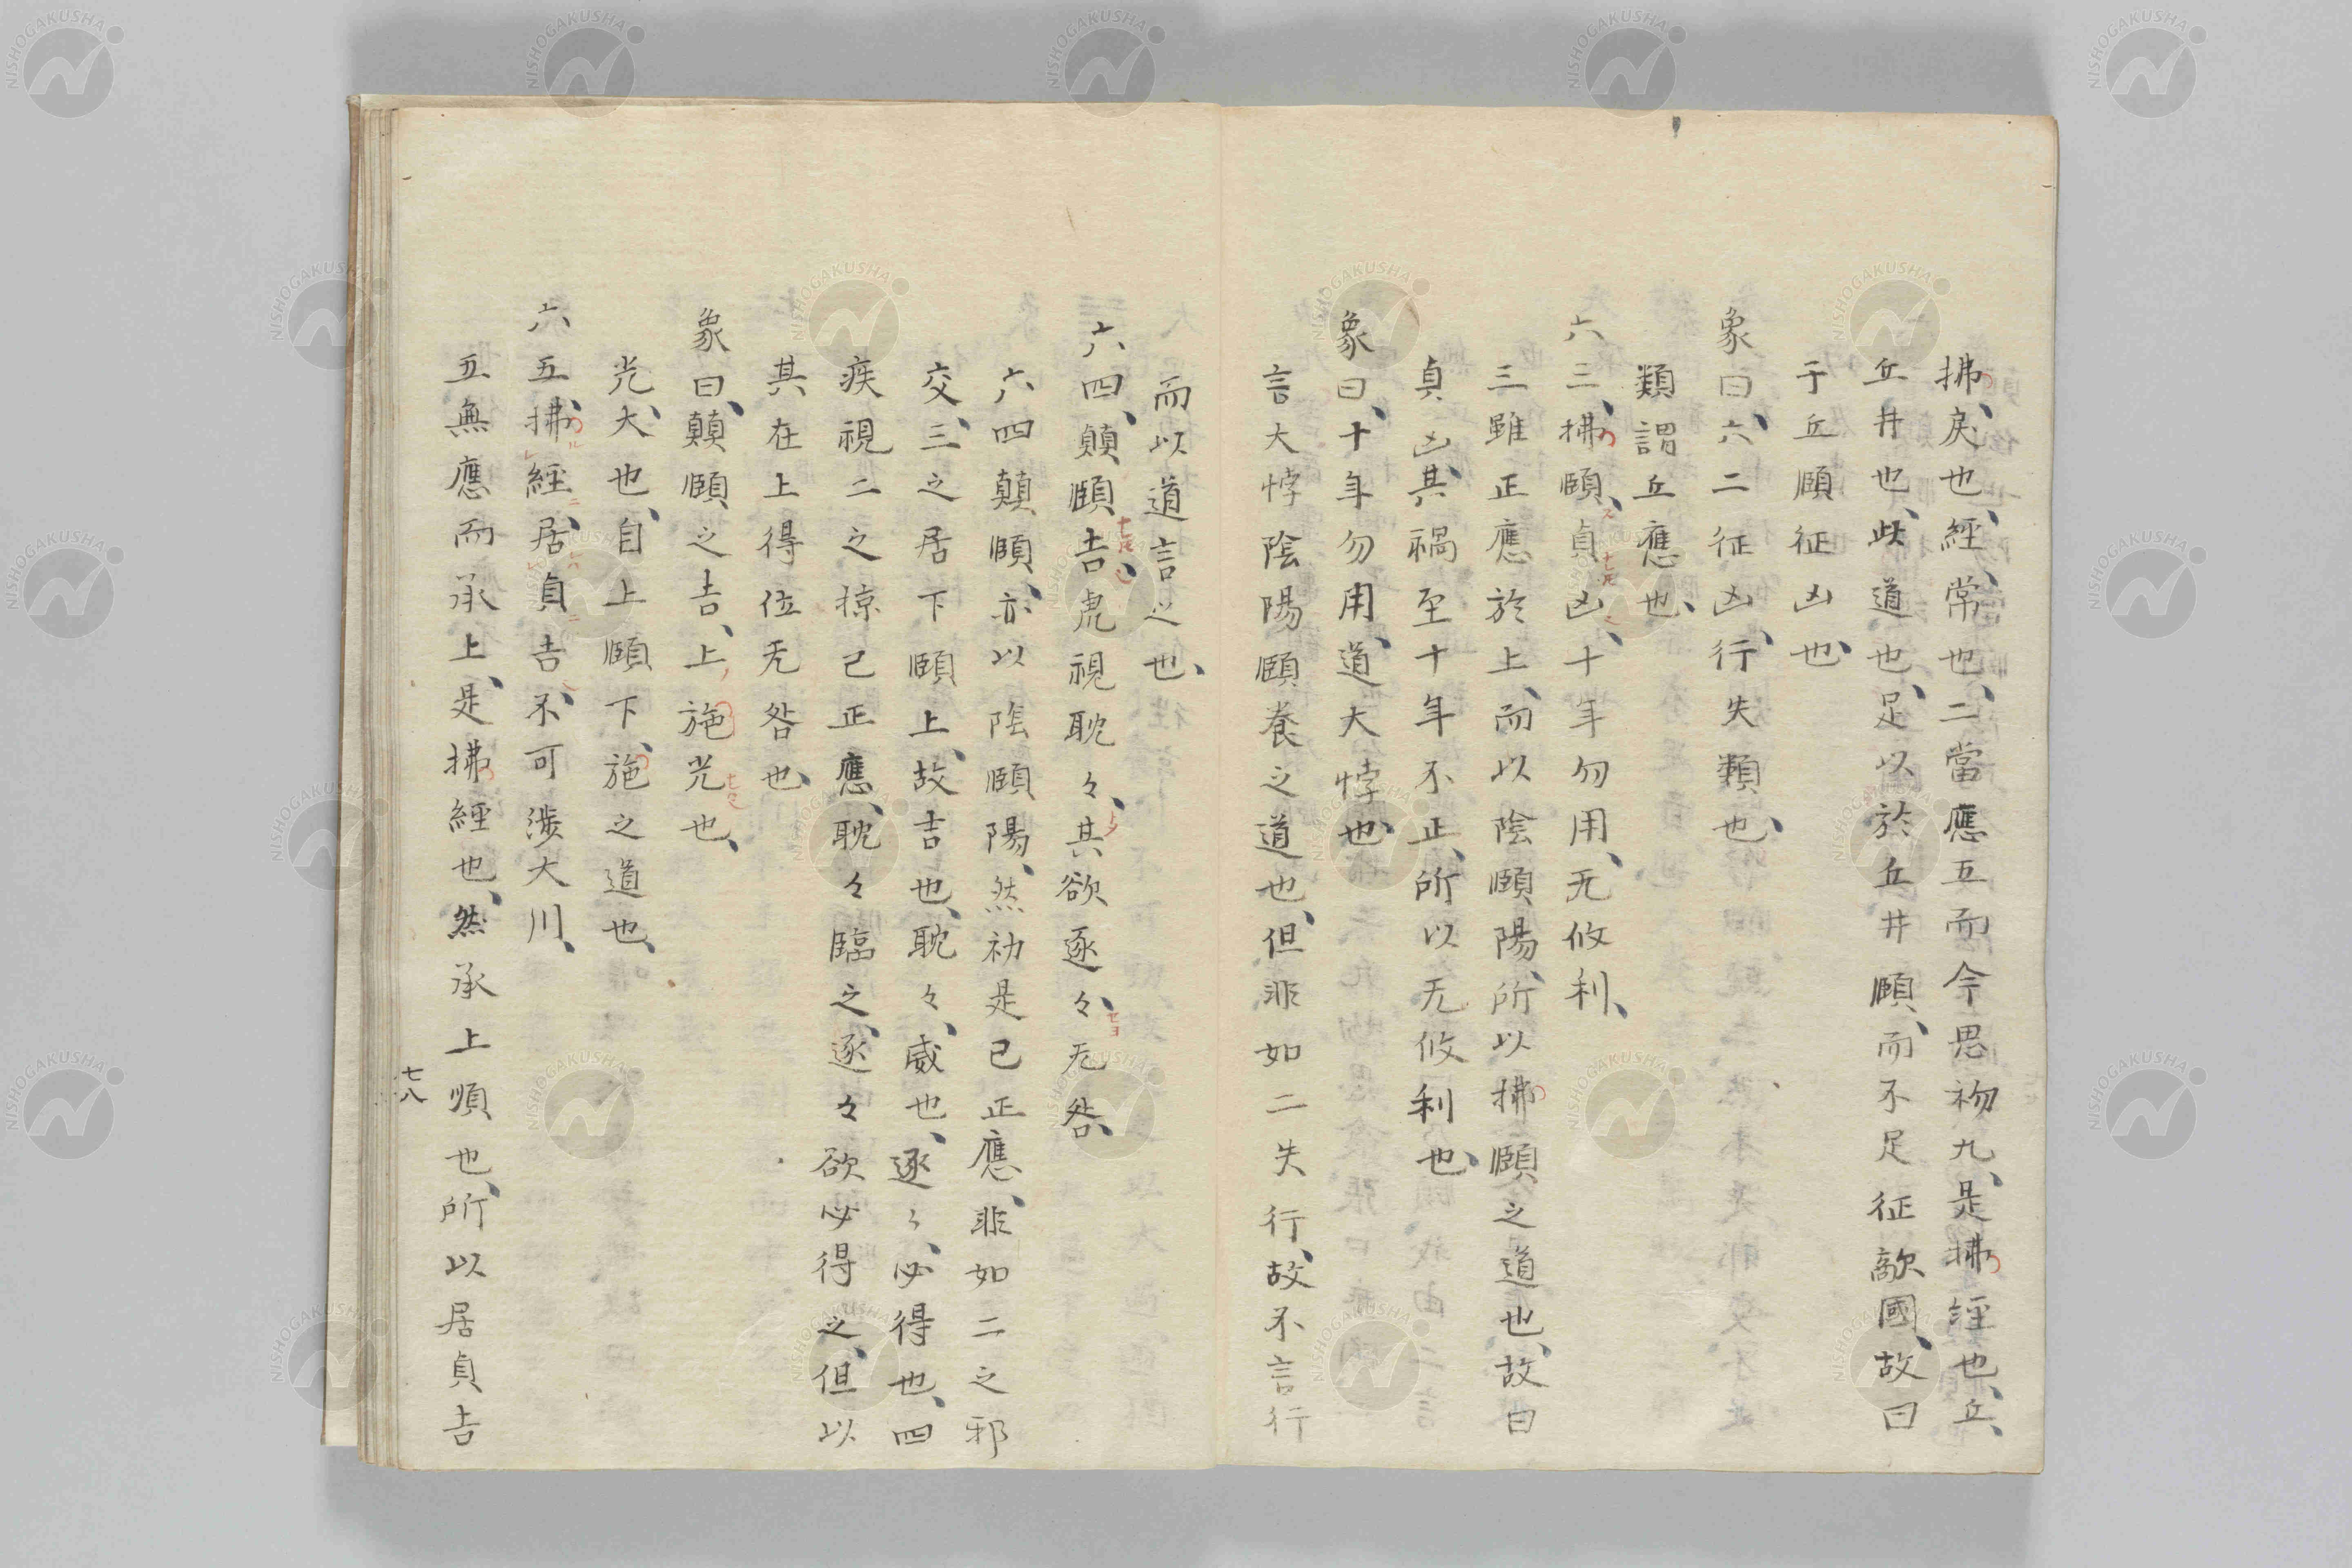 拂、戾也、經、常也、二當應五而今思初九、是拂經也、丘、
丘井也、此道也、足以於丘井頤、而不足征敵國、故曰
于丘頤征凶也、
象曰、六二征凶、行失類也、
類謂丘應也、
六三、拂頤、貞凶、十年勿用、无攸利、
三雖正應於上、而以陰頤陽、所以拂頤之道也、故曰
貞凶、其禍至十年不正、所以无攸利也、
象曰、十年勿用、道大悖也、
言大悖陰陽頤養之道也、但非如二失行、故不言行
而以道言之也、
六四、顛頤、吉、虎視耽々、其欲逐々、无咎、
六四顛頤、亦以陰頤陽、然初是己正應、非如二之邪
交、三之居下頤上、故吉也、耽々、威也、逐々、必得也、四
疾視二之掠己正應、耽々臨之、逐々欲必得之、但以
其在上得位无咎也、
象曰、顛頤之吉、上施光也、
光、大也、自上頤下、施之道也、
六五、拂經、居貞吉、不可涉大川、
五無應而承上、是拂經也、然承上順也、所以居貞吉
七八
NISHOGAKUSHA